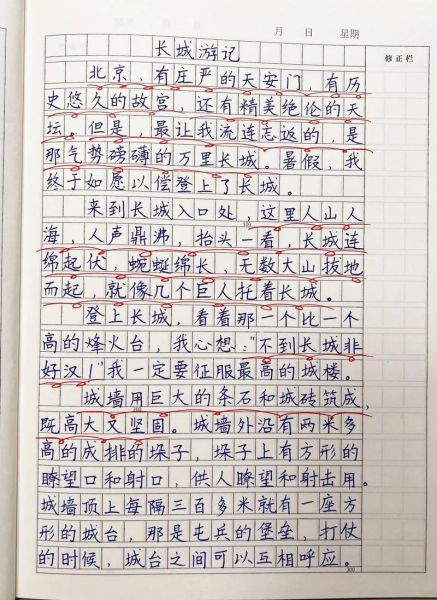 月 日 星期
修正栏
长城游记
北京，有庄严的天安门，有历
史悠久的故宫，还有精美绝伦的天
坛。但是，最让我流连志返的，是
那气势磅礴的万里长城。暑假，我
终于如愿以偿登上了长城。
来到长城入口处，这里人山人
海，人声鼎沸，抬头一看，长城连
绵起伏，蜿蜒绵长，无数大山拔地
而起，就像几个巨人托着长城。
登上长城，看着那一个比一个
高的烽火台，我心想："不到长城非
好汉！"我一定要征服最高的城楼。
城墙用巨大的条石和城砖筑成，
既高大又坚固。城墙外沿有两米多
高的成排的垛子，垛子上有方形的
瞭望口和射口，供人瞭望和射击用。
城墙顶上每隔三百多米就有一座方
形的城台，那是屯兵的堡垒，打仗
的时候，城台之间可以互相呼应。
300